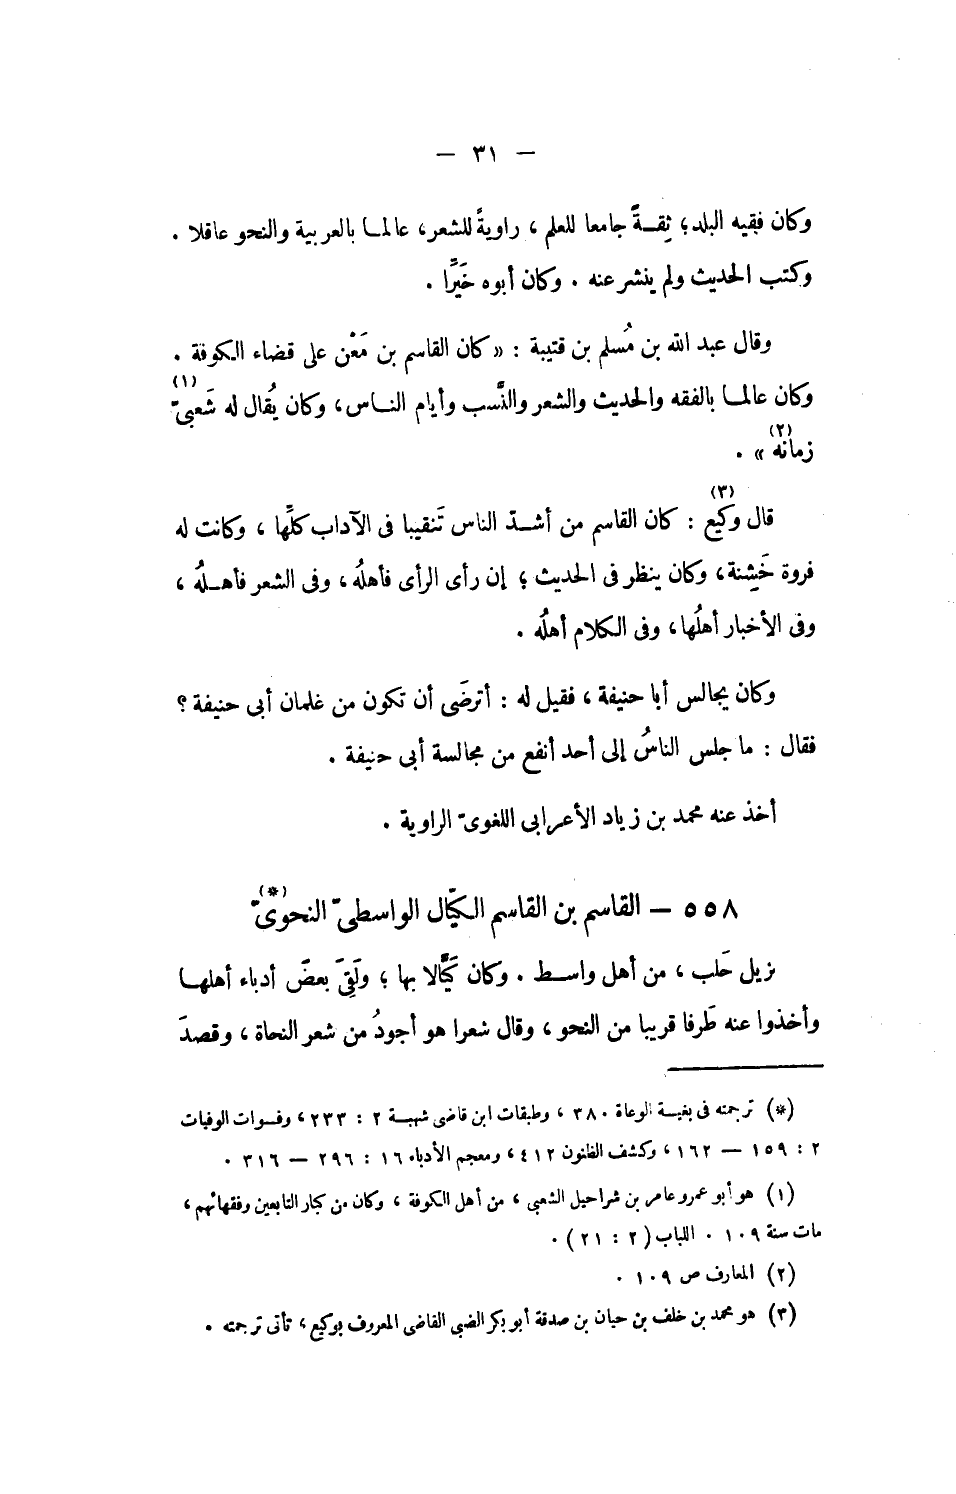 — ٣١ —
وكان فقيه البلد؛ ثِقـةً جامعا للعلم ، راويةً للشعر، عالمـا بالعربية والنحو عاقلا .
وكتب الحديث ولم ينشر عنه . وكان أبوه خَيِّرًا .
وقال عبد الله بن مُسلم بن قتيبة : « كان القاسم بن مَعْن على قضاء الكوفة .
وكان عالمـا بالفقه والحديث والشعر والنَّسب وأيام النـاس، وكان يُقال له شَعبىّ (١)
زمانه (٢) » .
قال وكيع (٣) : كان القاسم من أشـدّ الناس تَنقيبا فى الآداب كلِّها ، وكانت له
فروة خَشِنة، وكان ينظر فى الحديث ؛ إن رأى الرأى فأهلُه ، وفى الشعر فأهـلُه ،
وفى الأخبار أهلُها، وفى الكلام أهلُه .
وكان يجالس أبا حنيفة ، فقيل له : أترضَى أن تكون من غلمان أبى حنيفة ؟
فقال : ما جلس الناسُ إلى أحد أنفع من مجالسة أبى حنيفة .
أخذ عنه محمد بن زياد الأعرابى اللغوىّ الراوية .
٥٥٨ — القاسم بن القاسم الكيّال الواسطىّ النحوىّ (*)
نزيل حَلب ، من أهل واسـط . وكان كَيَّالا بها ؛ ولَقِىَ بعضَ أدباء أهلهـا
وأخذوا عنه طَرفا قريبا من النحو ، وقال شعرا هو أجودُ من شعر النحاة ، وقصدَ
(*) ترجمته فى بغيـة الوعاة ٣٨٠ ، وطبقات ابن قاضى شهبـة ٢ : ٢٣٣ ، وفـوات الوفيات
٢ : ١٥٩ — ١٦٢ ، وكشف الظنون ٤١٢ ، ومعجم الأدباء ١٦ : ٢٩٦ — ٣١٦ .
(١) هو أبو عمرو عامر بن شراحيل الشعبى ، من أهل الكوفة ، وكان من كبار التابعين وفقهائهم ،
مات سنة ١٠٩ . اللباب ( ٢ : ٢١ ) .
(٢) المعارف ص ١٠٩ .
(٣) هو محمد بن خلف بن حيان بن صدقة أبو بكر الضبى القاضى المعروف بوكيع ، تأتى ترجمته .